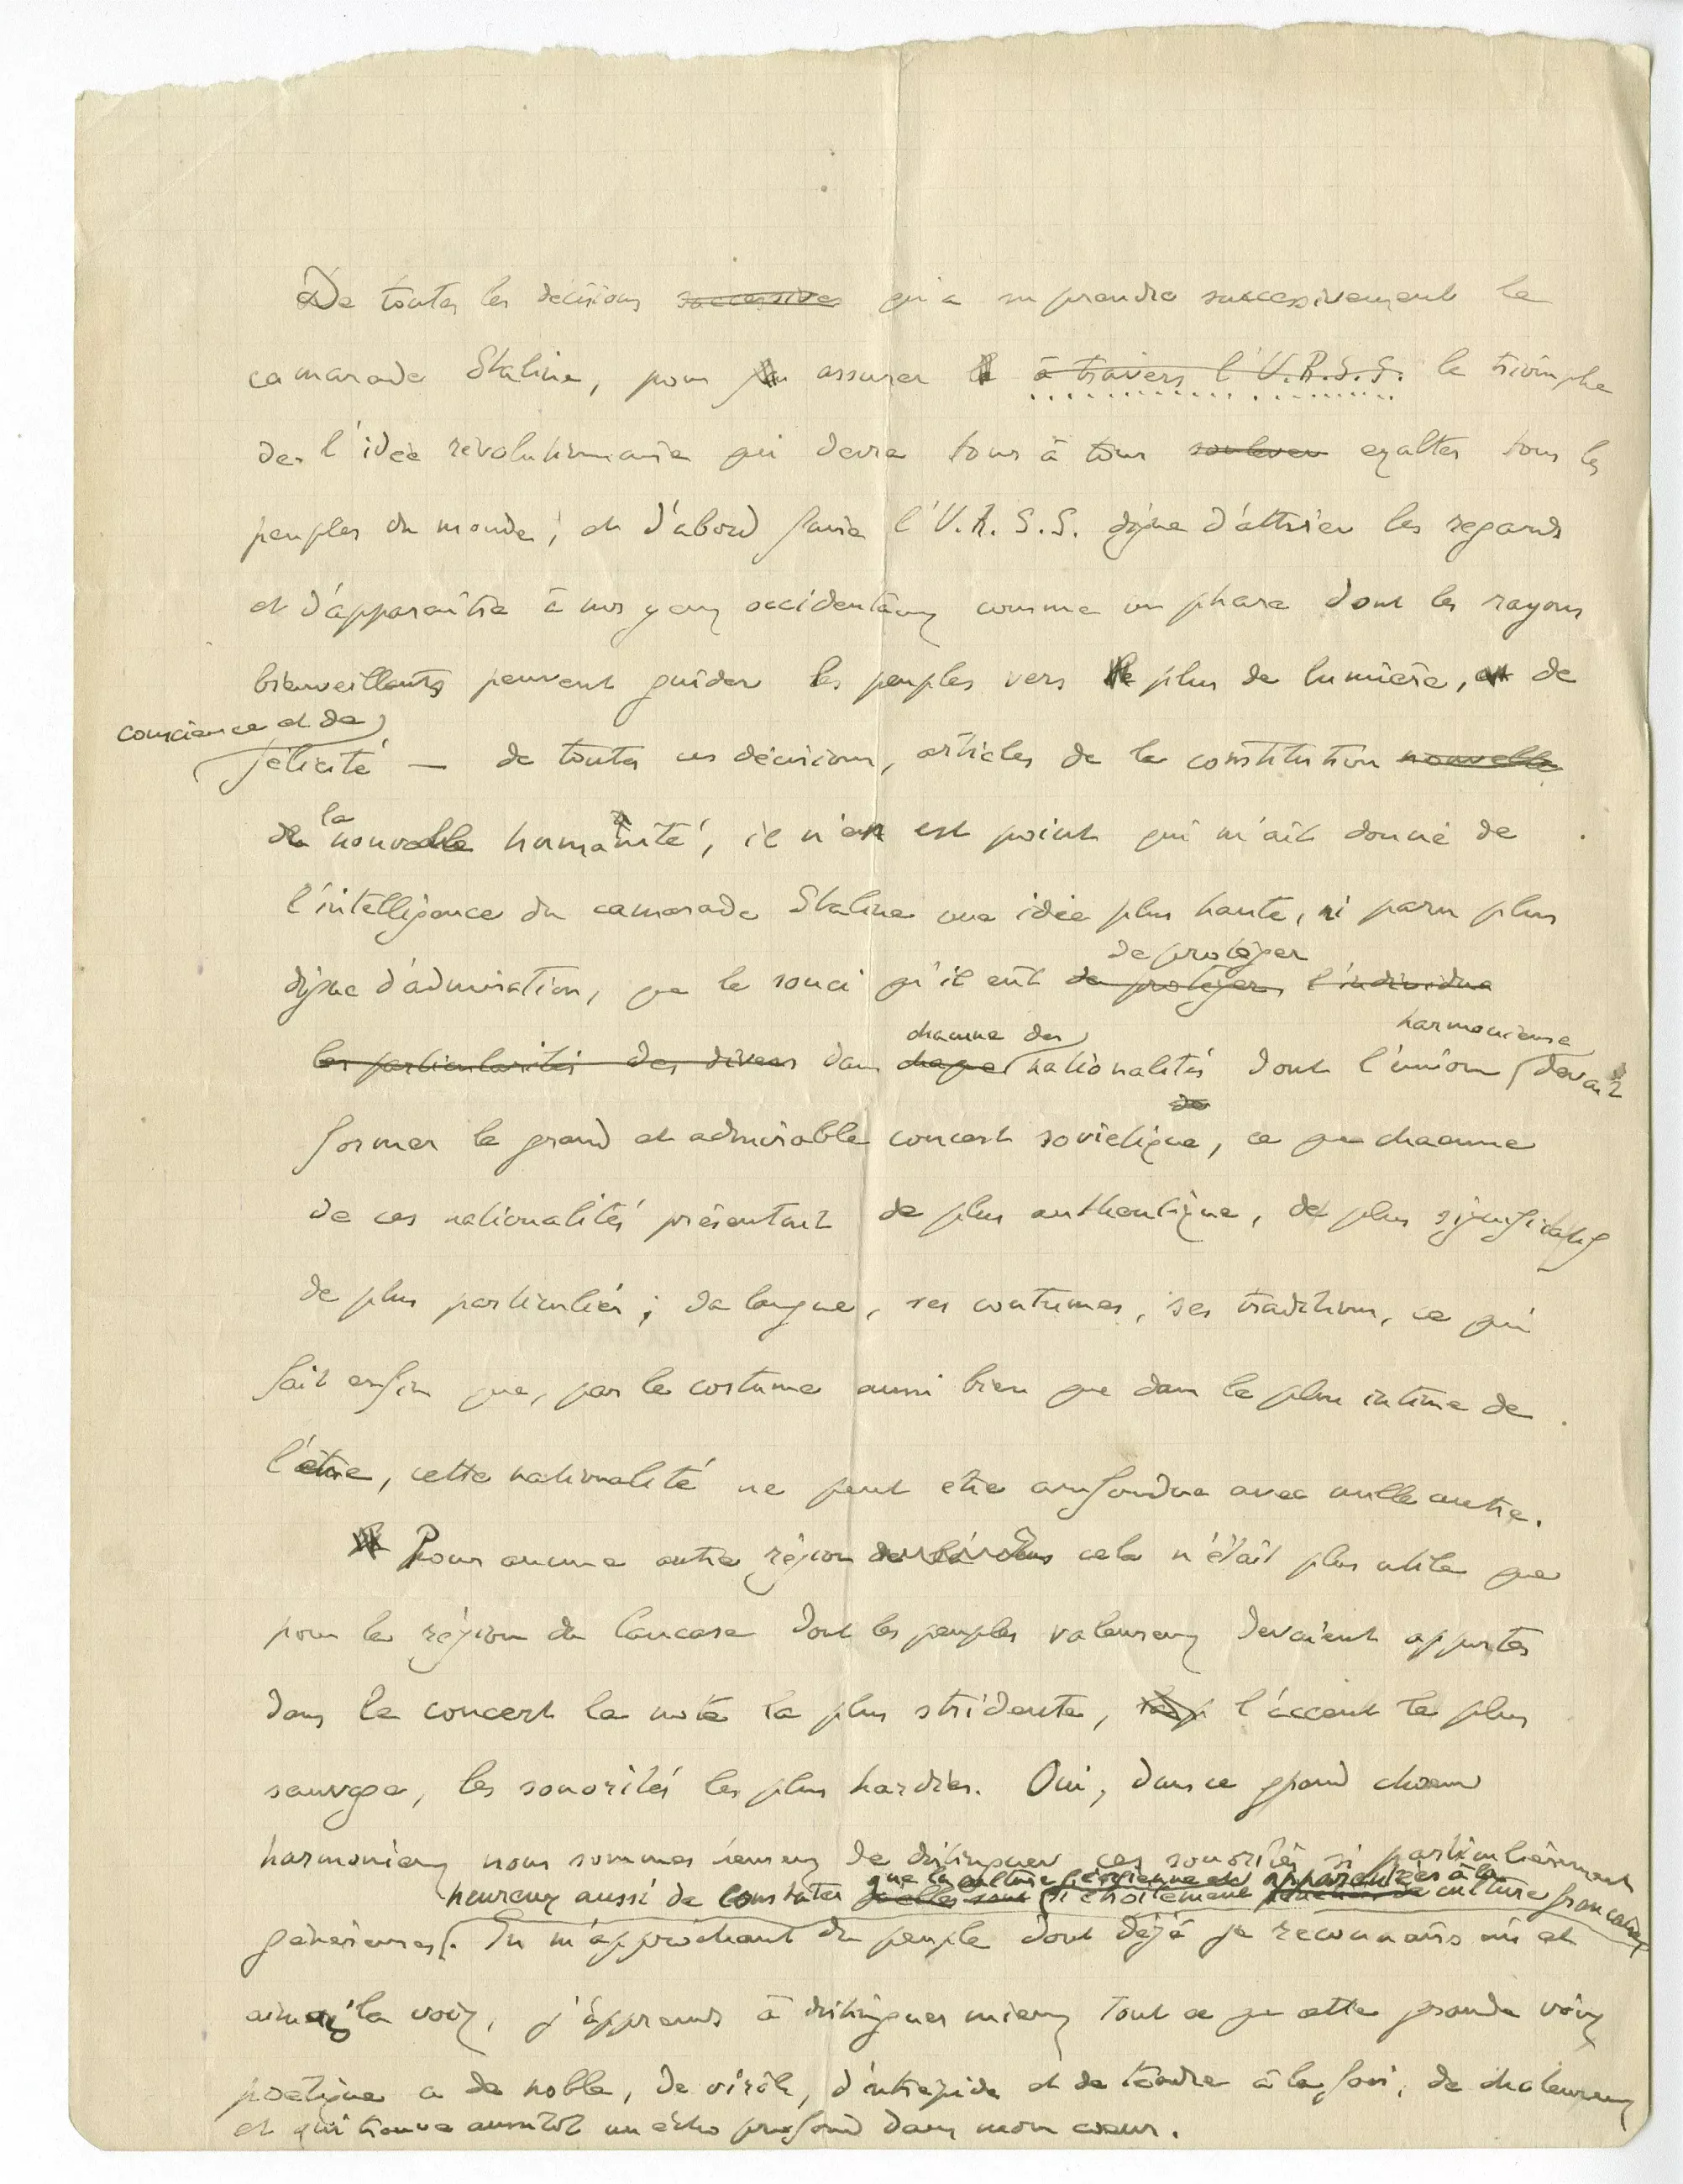 De toutes les décisions successives qu'a su prendre successivement le
camarade Staline, pour assurer à travers l'U.R.S.S. le triomphe
de l'idée révolutionnaire qui devra tour à tour soulever exalter tous les
peuples du monde; et d'abord faire l'U.R.S.S. digne d'attirer les regards
et d'apparaître à nos yeux occidentaux comme un phare dont les rayons
bienveillants peuvent guider les peuples vers plus de lumière, de
conscience et de
félicité — de toutes ces décisions, articles de la constitution nouvelle
de la nouvelle humanité, il n'en est point qui m'ait donné de
l'intelligence du camarade Staline une idée plus haute, ni paru plus
de protéger
digne d'admiration, que le souci qu'il eût de protéger l'individu
chacune des harmonieuse
les particularités des divers dans chaque nationalités dont l'union devait
de
former le grand et admirable concert soviétique, ce que chacune
de ces nationalités présentait de plus authentique, de plus significatif
de plus particulier; sa langue, ses coutumes, ses traditions, ce qui
fait enfin que, par le costume aussi bien que dans le plus intime de
l'être, cette nationalité ne peut être confondue avec nulle autre.
Pour aucune autre région cela n'était plus utile que
pour la région du Caucase dont les peuples valeureux devaient apporter
dans le concert la note la plus stridente, l'accent le plus
sauvage, les sonorités les plus hardies. Oui, dans ce grand chœur
harmonieux nous sommes heureux de distinguer ces sonorités si particulièrement
que la culture géorgienne est apparentée à la
heureux aussi de constater qu'elles sont si étroitement culture française
généreuses. En m'approchant du peuple dont déjà je reconnais et
aimais la voix, j'apprends à distinguer mieux tout ce que cette grande voix
poétique a de noble, de viril, d'intrépide et de tendre à la fois, de chaleureux
et qui trouve aussitôt un écho profond dans mon cœur.